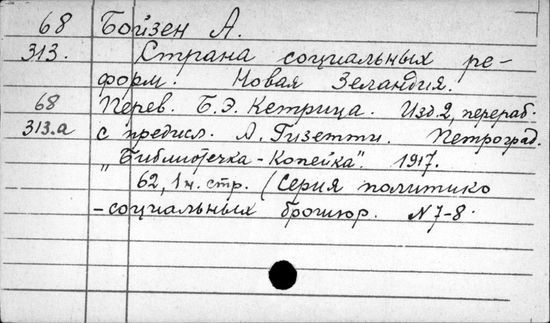 68 Бойзен А.
313. Страна социальных ре-
форм. Новая Зеландия.
68 Перев. Б. Э. Кетрица. Изд. 2, перераб.
313.а с предисл. А. Гизетти. Петроград.
„Библиотечка-Копейка". 1917.
62, 1 н. стр. (Серия политико
-социальных брошюр. N 7-8.